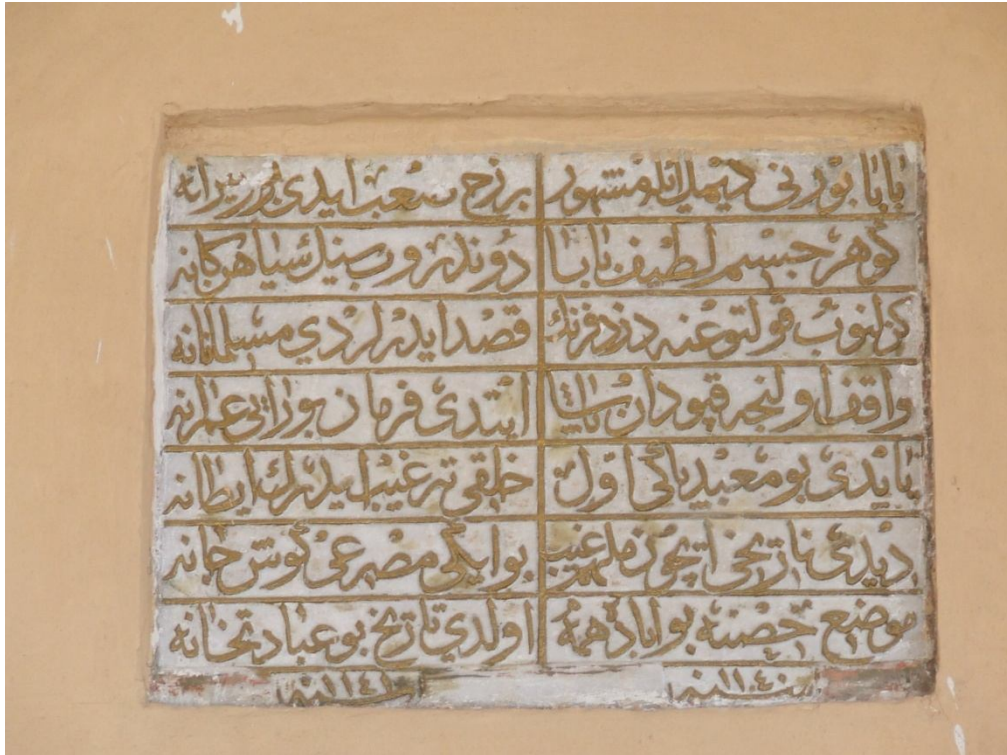 بابا بورنی دیمیله مشهور برزخ صعب ایدی
کوهر جسم لطیف بابا دوندرر
کزلنوب قولتوغنه دزد فرنك قصد ایدرلردی مسلمانه
واقف اولنجه قپودان پاشا ایتدی فرمان بورایی عمرانه
یاپدی بو معبد پاکی اول خلقی ترغیب ایدرك
دیدی تاریخی بو ایکی مصرعی کوش جانه
موضع حصنه بو اباد همه اولدی تاریخ بو عبادتخانه
سنه ١١٤٠ سنه ١١٤١